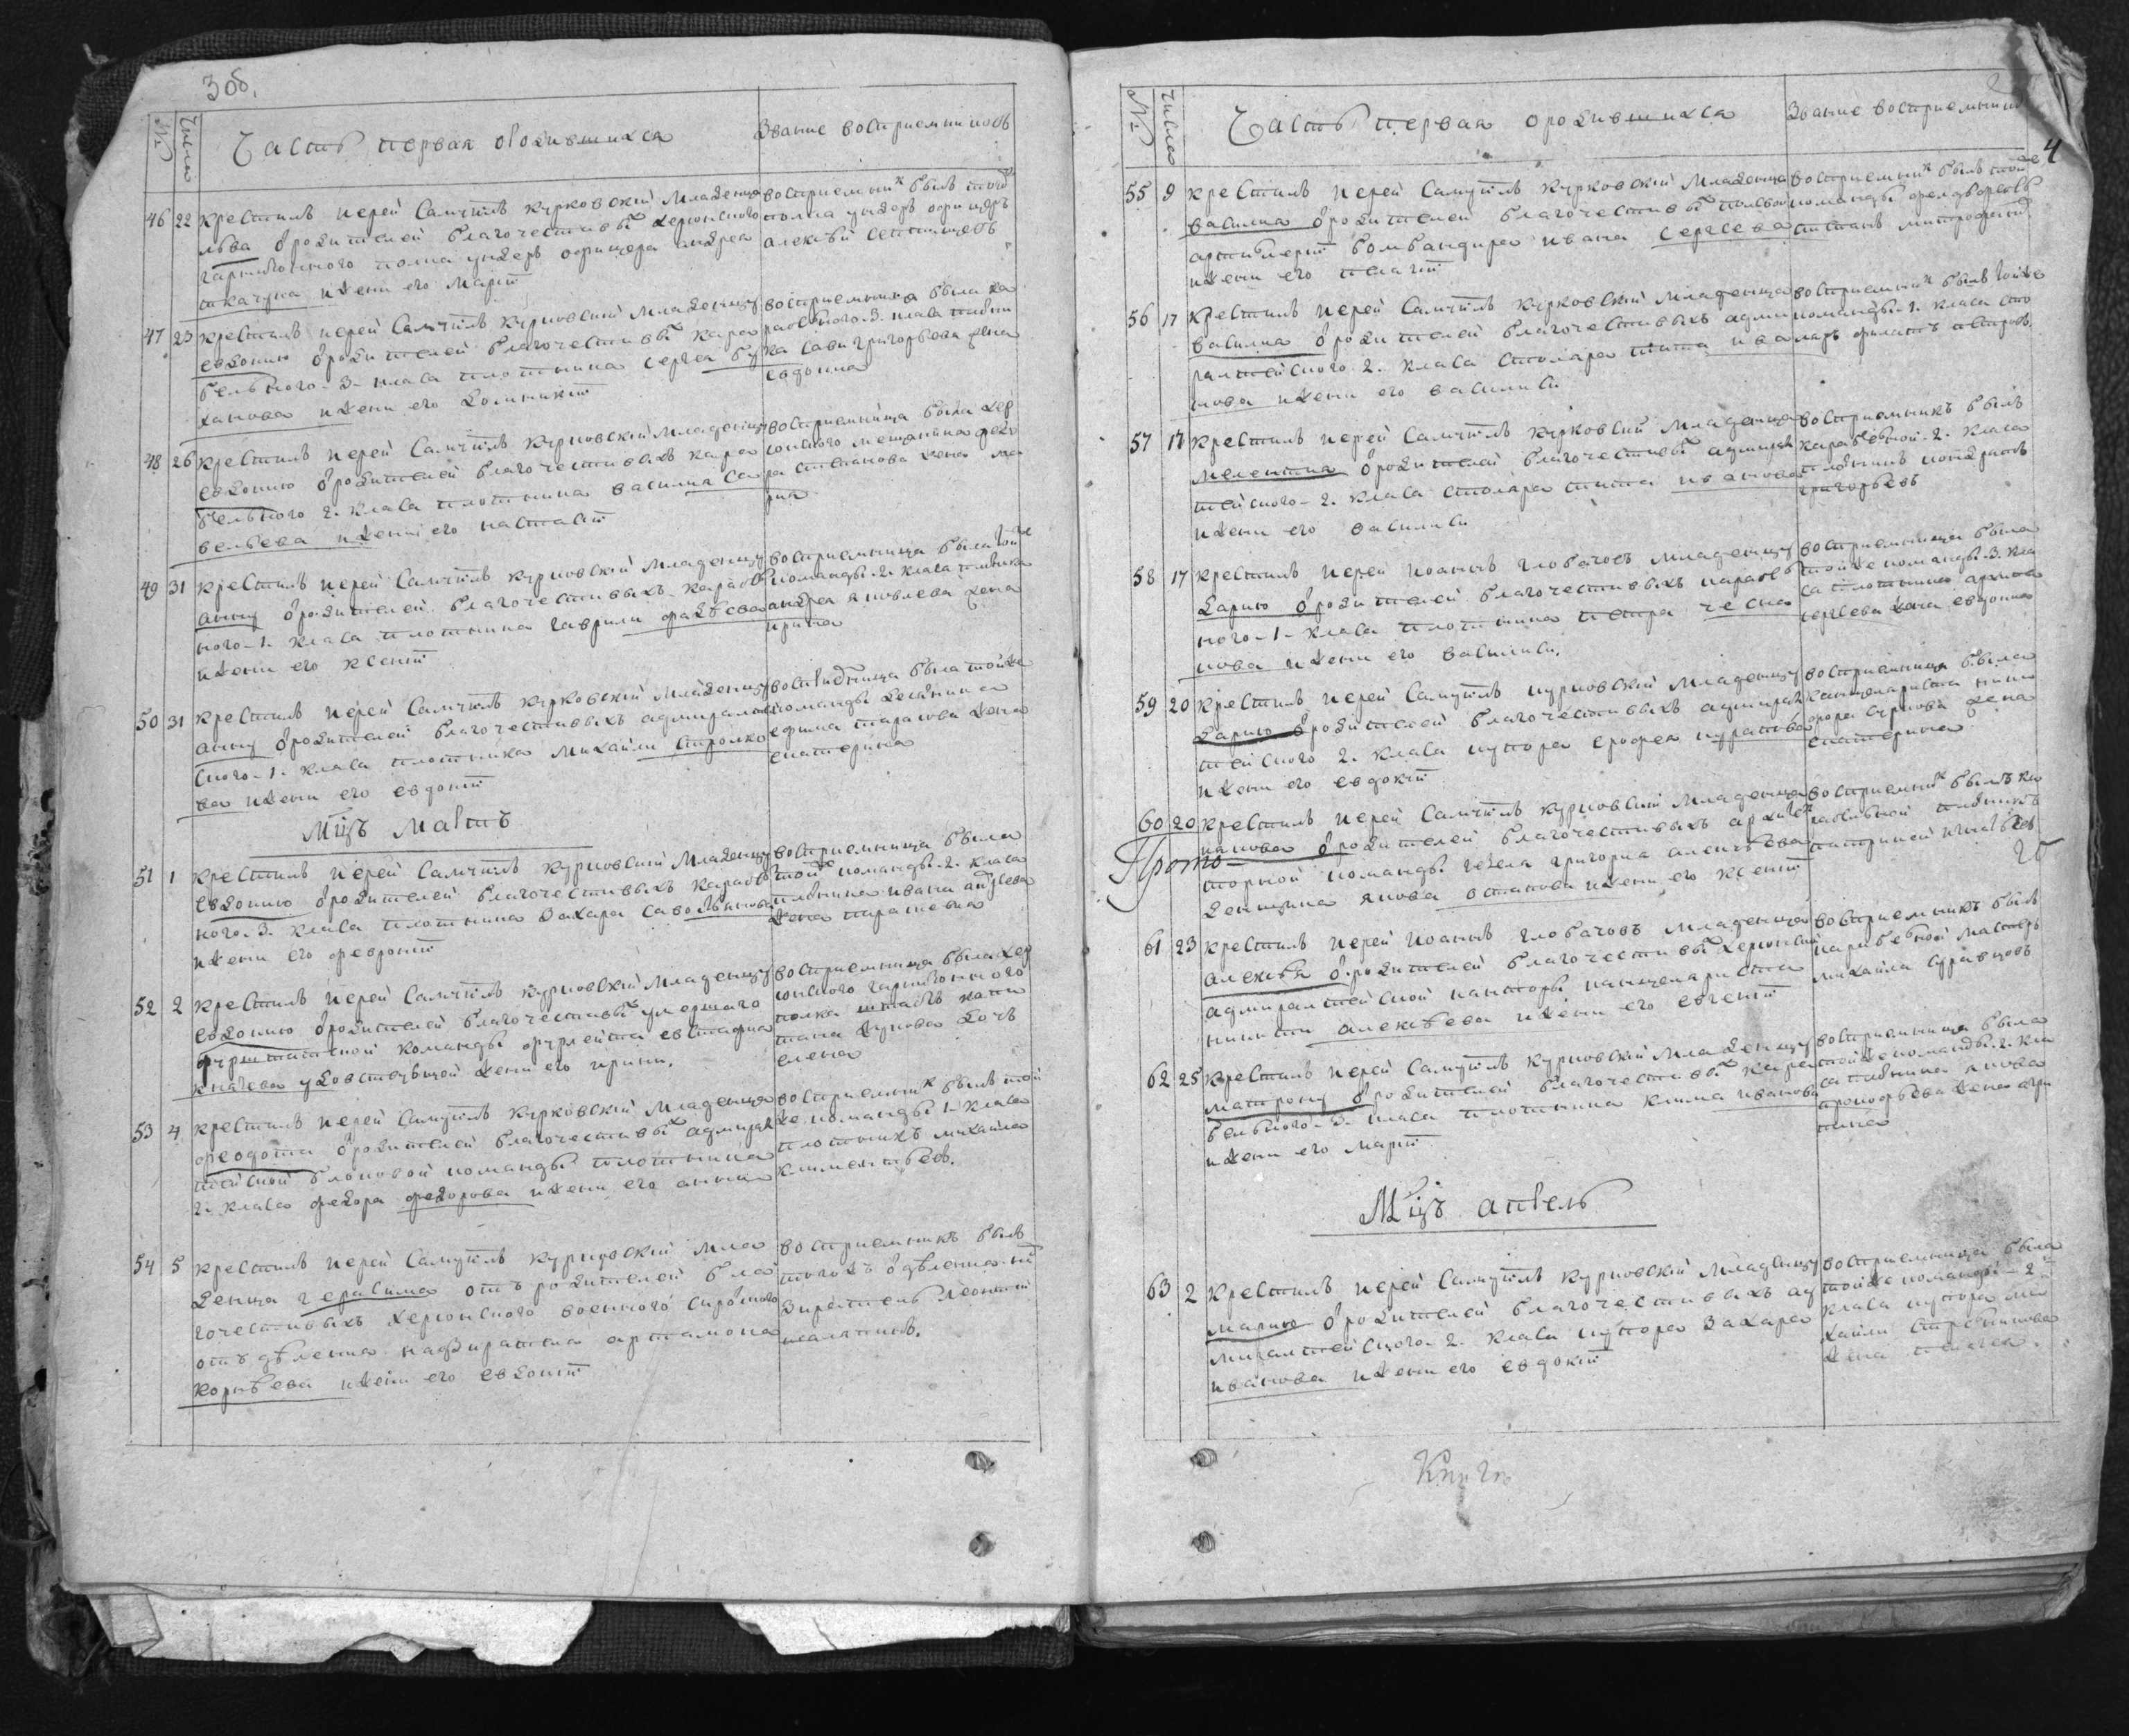 3 об.
№ Числа Часть первая о родившихся Звание восприемниковъ
46 22 крестилъ иерей Самуилъ Курковский младенца
льва от родителей благочестивых херсонского
гарнизонного полка ундеръ офицера андрея
ткачука и жени его Марии
восприемник былъ того
полка ундеръ офицеръ
алексей
47 23 крестилъ иерей Самуилъ Курковский младенцу
евдокию от родителей благочестивых кара
бельного 3 класа плотника сергея бу
ханова и жени его Домникии
восприемница была ка
рабельного 3 класа плотни
ка сави григорьева жена
евдокия
48 26 крестилъ иерей Самуилъ Курковский младенцу
евдокию от родителей благочестивыхъ кара
бельного 2 класа плотника василия са
вельева и жени его настасии
восприемница была хер
сонского мещанина федо
ра степанова жена ма
рия
49 31 крестилъ иерей Самуилъ Курковский младенцу
анну от родителей благочестивыхъ карабел
ного 1 класа плотника гаврили фадеева
и жени его ксении
восприемница была тойже
команды 2 класа плотника
андрея яковлева жена
ирина
50 31 крестилъ иерей Самуилъ Курковский младенцу
анну от родителей благочестивыхъ адмиралтей
ского 1 класа плотника михайли строко
ва и жени его евдокии
восприемница была тойже
команды десятника
ефима тарасова жена
екатерина
Мцъ Мартъ
51 1 крестилъ иерей Самуилъ Курковский младенцу
евдокию от родителей благочестивыхъ карабел
ного 3 класа плотника захара савостьянова
и жени его февронии
восприемница была
той команды 2 класа
плотника ивана андреева
жена парасковия
52 2 крестилъ иерей Самуилъ Курковский младенцу
евдокию от родителей благочестивых умершаго
фурштатской команды фурлейта евстафия
книгева удовствующей жени его ирини.
восприемница была хер
сонского гарнизонного
полка штабъ капи
тана жукова дочь
елена
53 4 крестилъ иерей Самуилъ Курковский младенца
феодота от родителей благочестивых адмирал
тейской блоковой команды плотника
2 класа федора федорова и жени его анны
восприемник былъ той
же команды 1 класа
плотникъ михайла
климентьевъ.
54 5 крестилъ иерей Самуилъ Курковский мла
денца герасима отъ родителей бла
гочестивыхъ херсонского военного сиротского
отъделения надзирателя артамона
корнеева и жени его евдокии
восприемникъ былъ
тогожъ отделения над
зиратель леонтий
калякинъ.
4
№ Числа Часть первая о родившихся Звание восприемник
55 9 крестилъ иерей Самуилъ Курковский младенца
василия от родителей благочестивых полевой
артилерии бомбандира ивана сергеева
и жени его пелагии
восприемник былъ тойже
команды фелдфебель
степанъ митрофанов
56 17 крестилъ иерей Самуилъ Курковский младенца
василия от родителей благочестивыхъ адми
ралтейского 2 класа столяра тита ива
нова и жени его василиси
восприемник былъ тойже
команды 1 класа сто
ляръ филатъ петровъ.
57 17 крестилъ иерей Самуилъ Курковский младенца
мелентия от родителей благочестивых адмирал
тейского 2 класа столяра тита иванова
и жени его василиси
восприемникъ былъ
карабельной 2 класа
плотникъ кондратъ
григорьевъ
58 17 крестилъ иерей Иоаннъ Глобачовъ младенцу
дарию от родителей благочестивыхъ карабел
ного 1 класа плотника петра чесно
кова и жени его василиси.
восприемница была
тойже команды 3 кла
са плотника архипа
сергеева жена евдокия
59 20 крестилъ иерей Самуилъ Курковский младенцу
дарию от родителей благочестивыхъ адмирал
тейского 2 класа купора ерофея куратова
и жени его евдокии
восприемница была
канцеляриста ники
фора суркова жена
екатерина
60 20 крестилъ иерей Самуилъ Курковский младенца
иакова от родителей благочестивыхъ архитек
торной команды чезела григория алексеева
денщика якова останова и жени его ксении
восприемник былъ ка
рабельной плотникъ
патрикей игнатьев
Прото
61 23 крестилъ иерей Иоаннъ Глобачовъ младенца
алексея от родителей благочестивых херсонской
адмиралтейской канторы канцеляриста
никити алексеева и жени его евгении
восприемникъ былъ
карабельной мастеръ
михайла суравцовъ
62 25 крестилъ иерей Самуилъ Курковский младенцу
матрону от родителей благочестивых кара
бельного 3 класа плотника клима иванова
и жени его марии
восприемница была
тойже команды 2 кла
са плотника якова
прокофьева жена агри
пина
Мцъ апрель
63 2 крестилъ иерей Самуилъ Курковский младенцу
марию от родителей благочестивыхъ ад
миралтейского 2 класа купора захара
иванова и жени его евдокии
восприемница была
тойже команды 2
класа купора ми
хайли
жена пелагея.